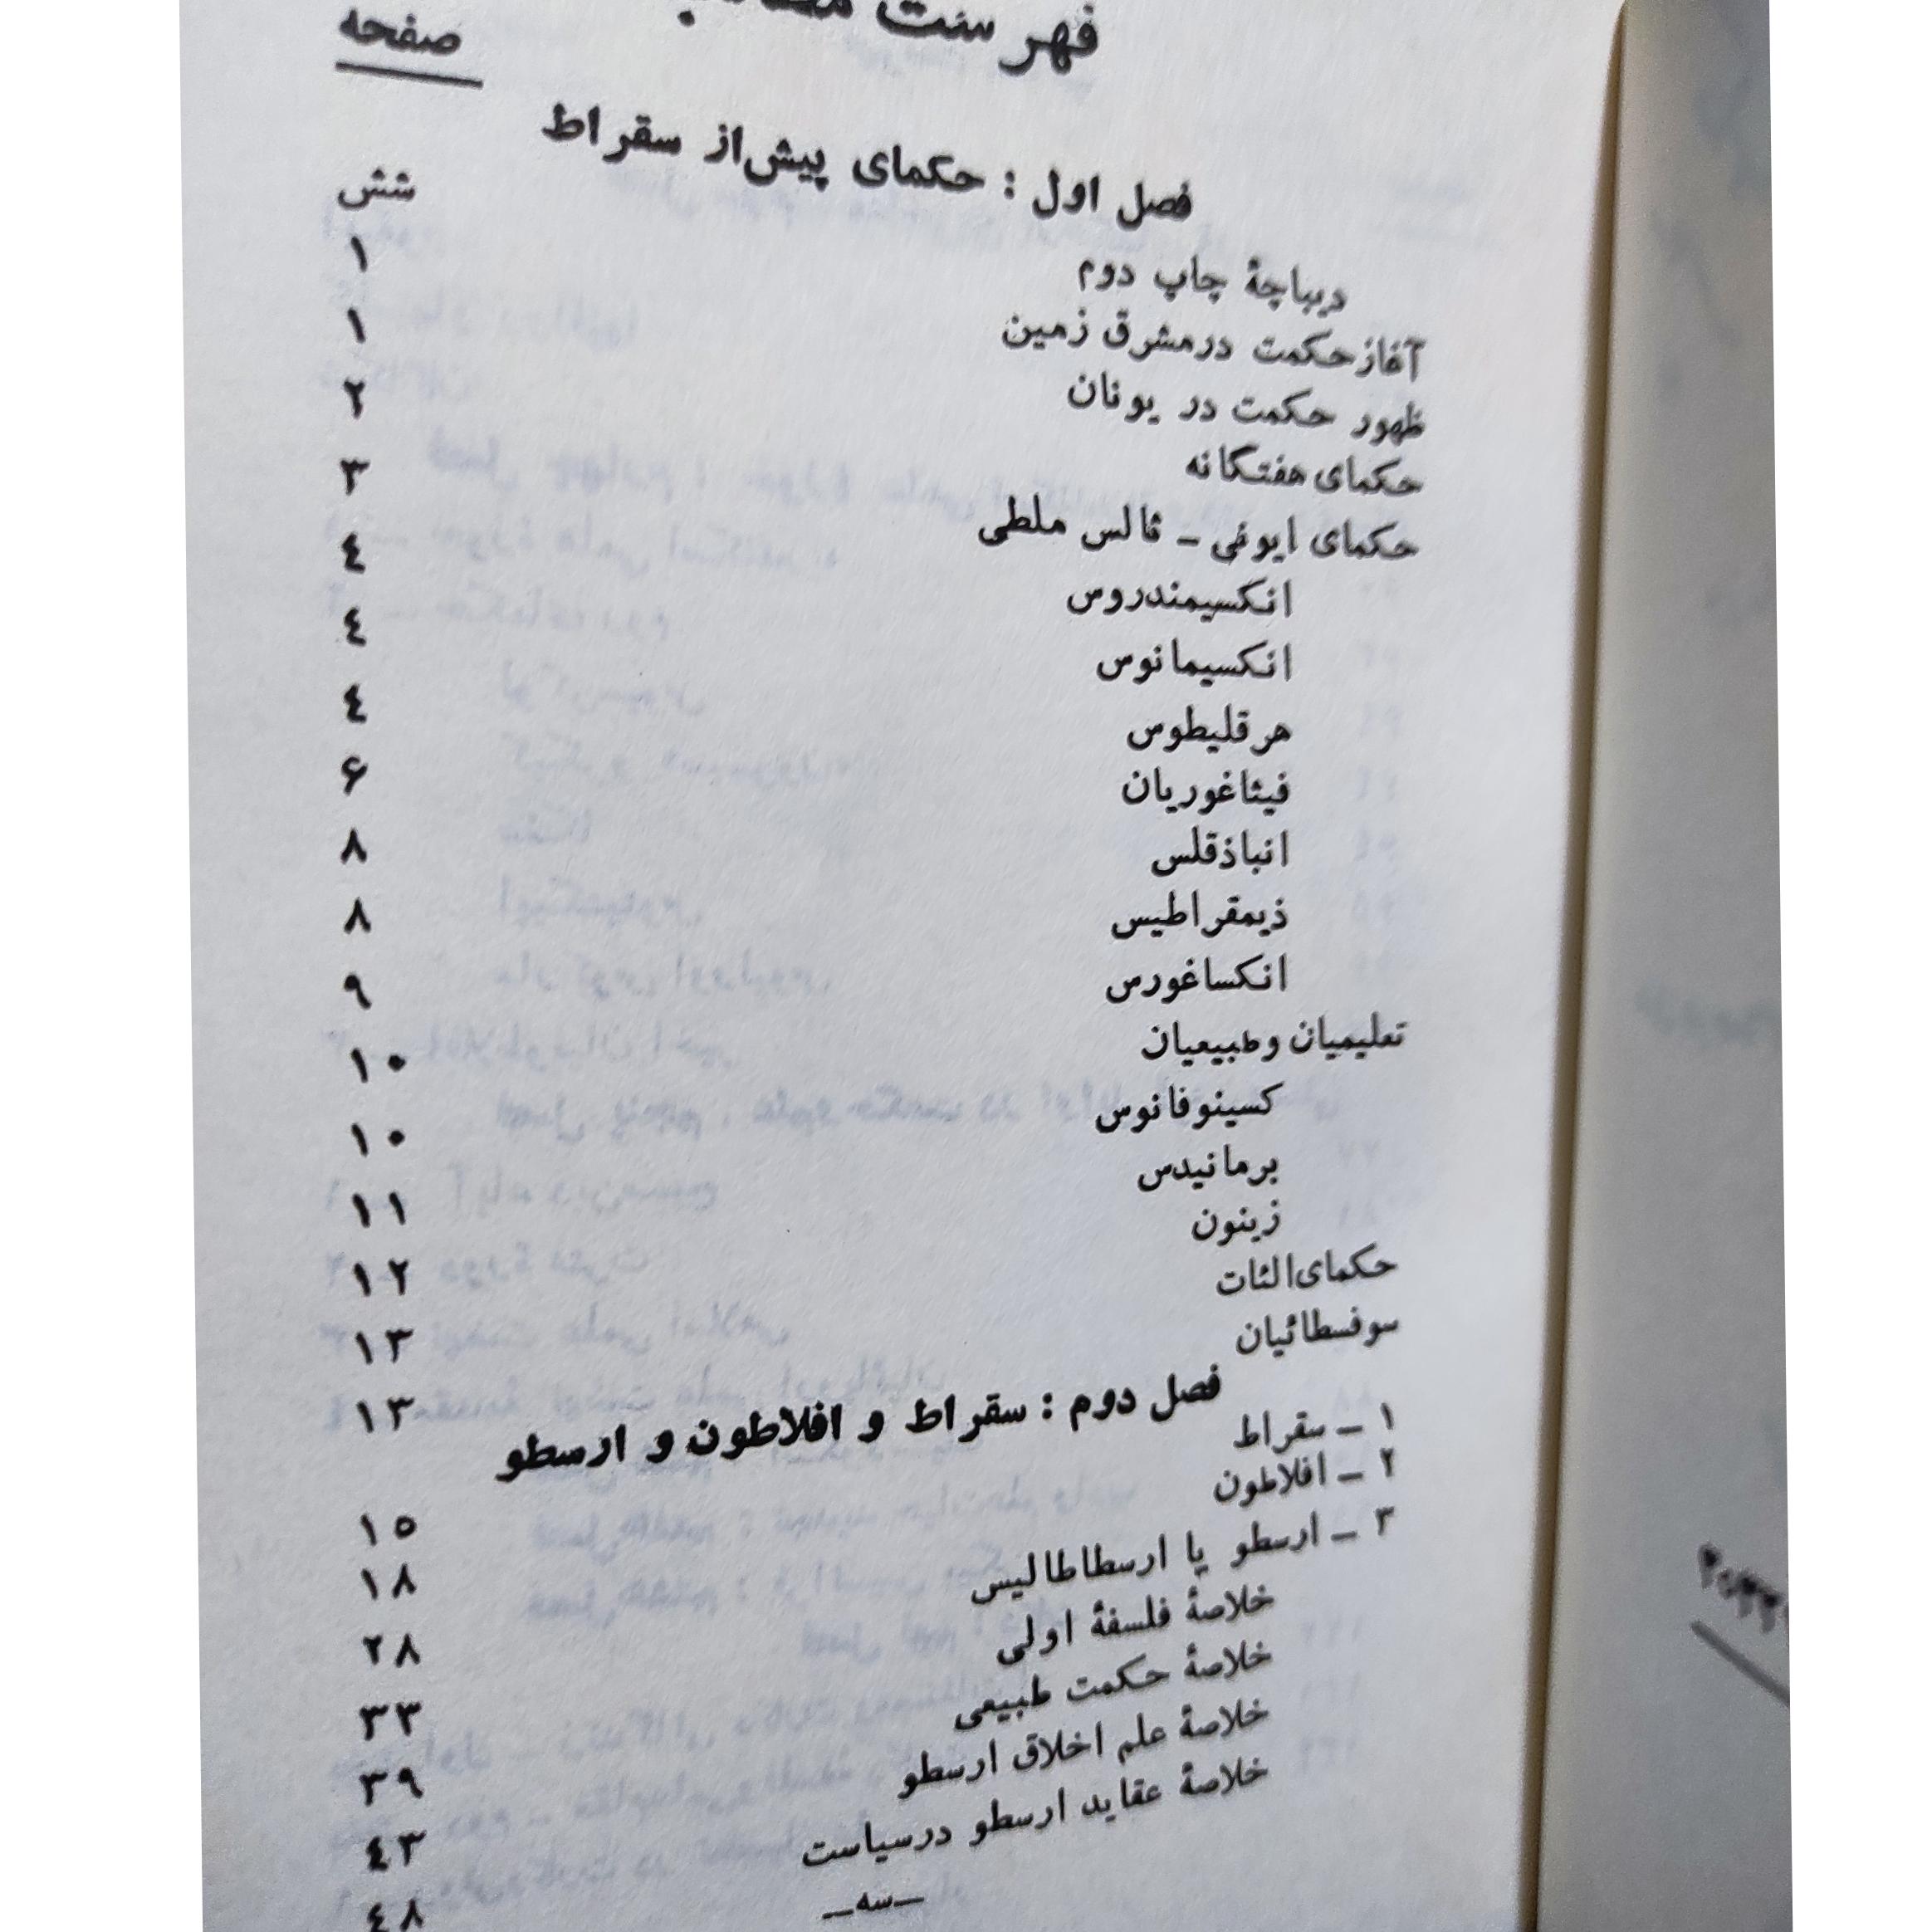 فهرست
صفحه
فصل اول : حکمای پیش‌از سقراط
دیباچهٔ چاپ دوم شش
آغازحکمت درمشرق زمین ۱
ظهور حکمت در یونان ۱
حکمای هفتگانه ۲
حکمای ایونی ـ ثالس ملطی ۳
انکسیمندروس ٤
انکسیمانوس ٤
هرقلیطوس ٤
فیثاغوریان ۶
انباذقلس ۸
ذیمقراطیس ۸
انکساغورس ۹
تعلیمیان وطبیعیان ۱۰
کسینوفانوس ۱۰
برمانیدس ۱۱
زینون ۱۲
حکمای‌الئات ۱۳
سوفسطائیان ۱۳
فصل دوم : سقراط و افلاطون و ارسطو
۱ ـ سقراط ۱۵
۲ ـ افلاطون ۱۸
۳ ـ ارسطو یا ارسطاطالیس ۲۸
خلاصهٔ فلسفهٔ اولی ۳۳
خلاصهٔ حکمت طبیعی ۳۹
خلاصهٔ علم اخلاق ارسطو ٤۳
خلاصهٔ عقاید ارسطو درسیاست ٤۸
ـ سه ـ